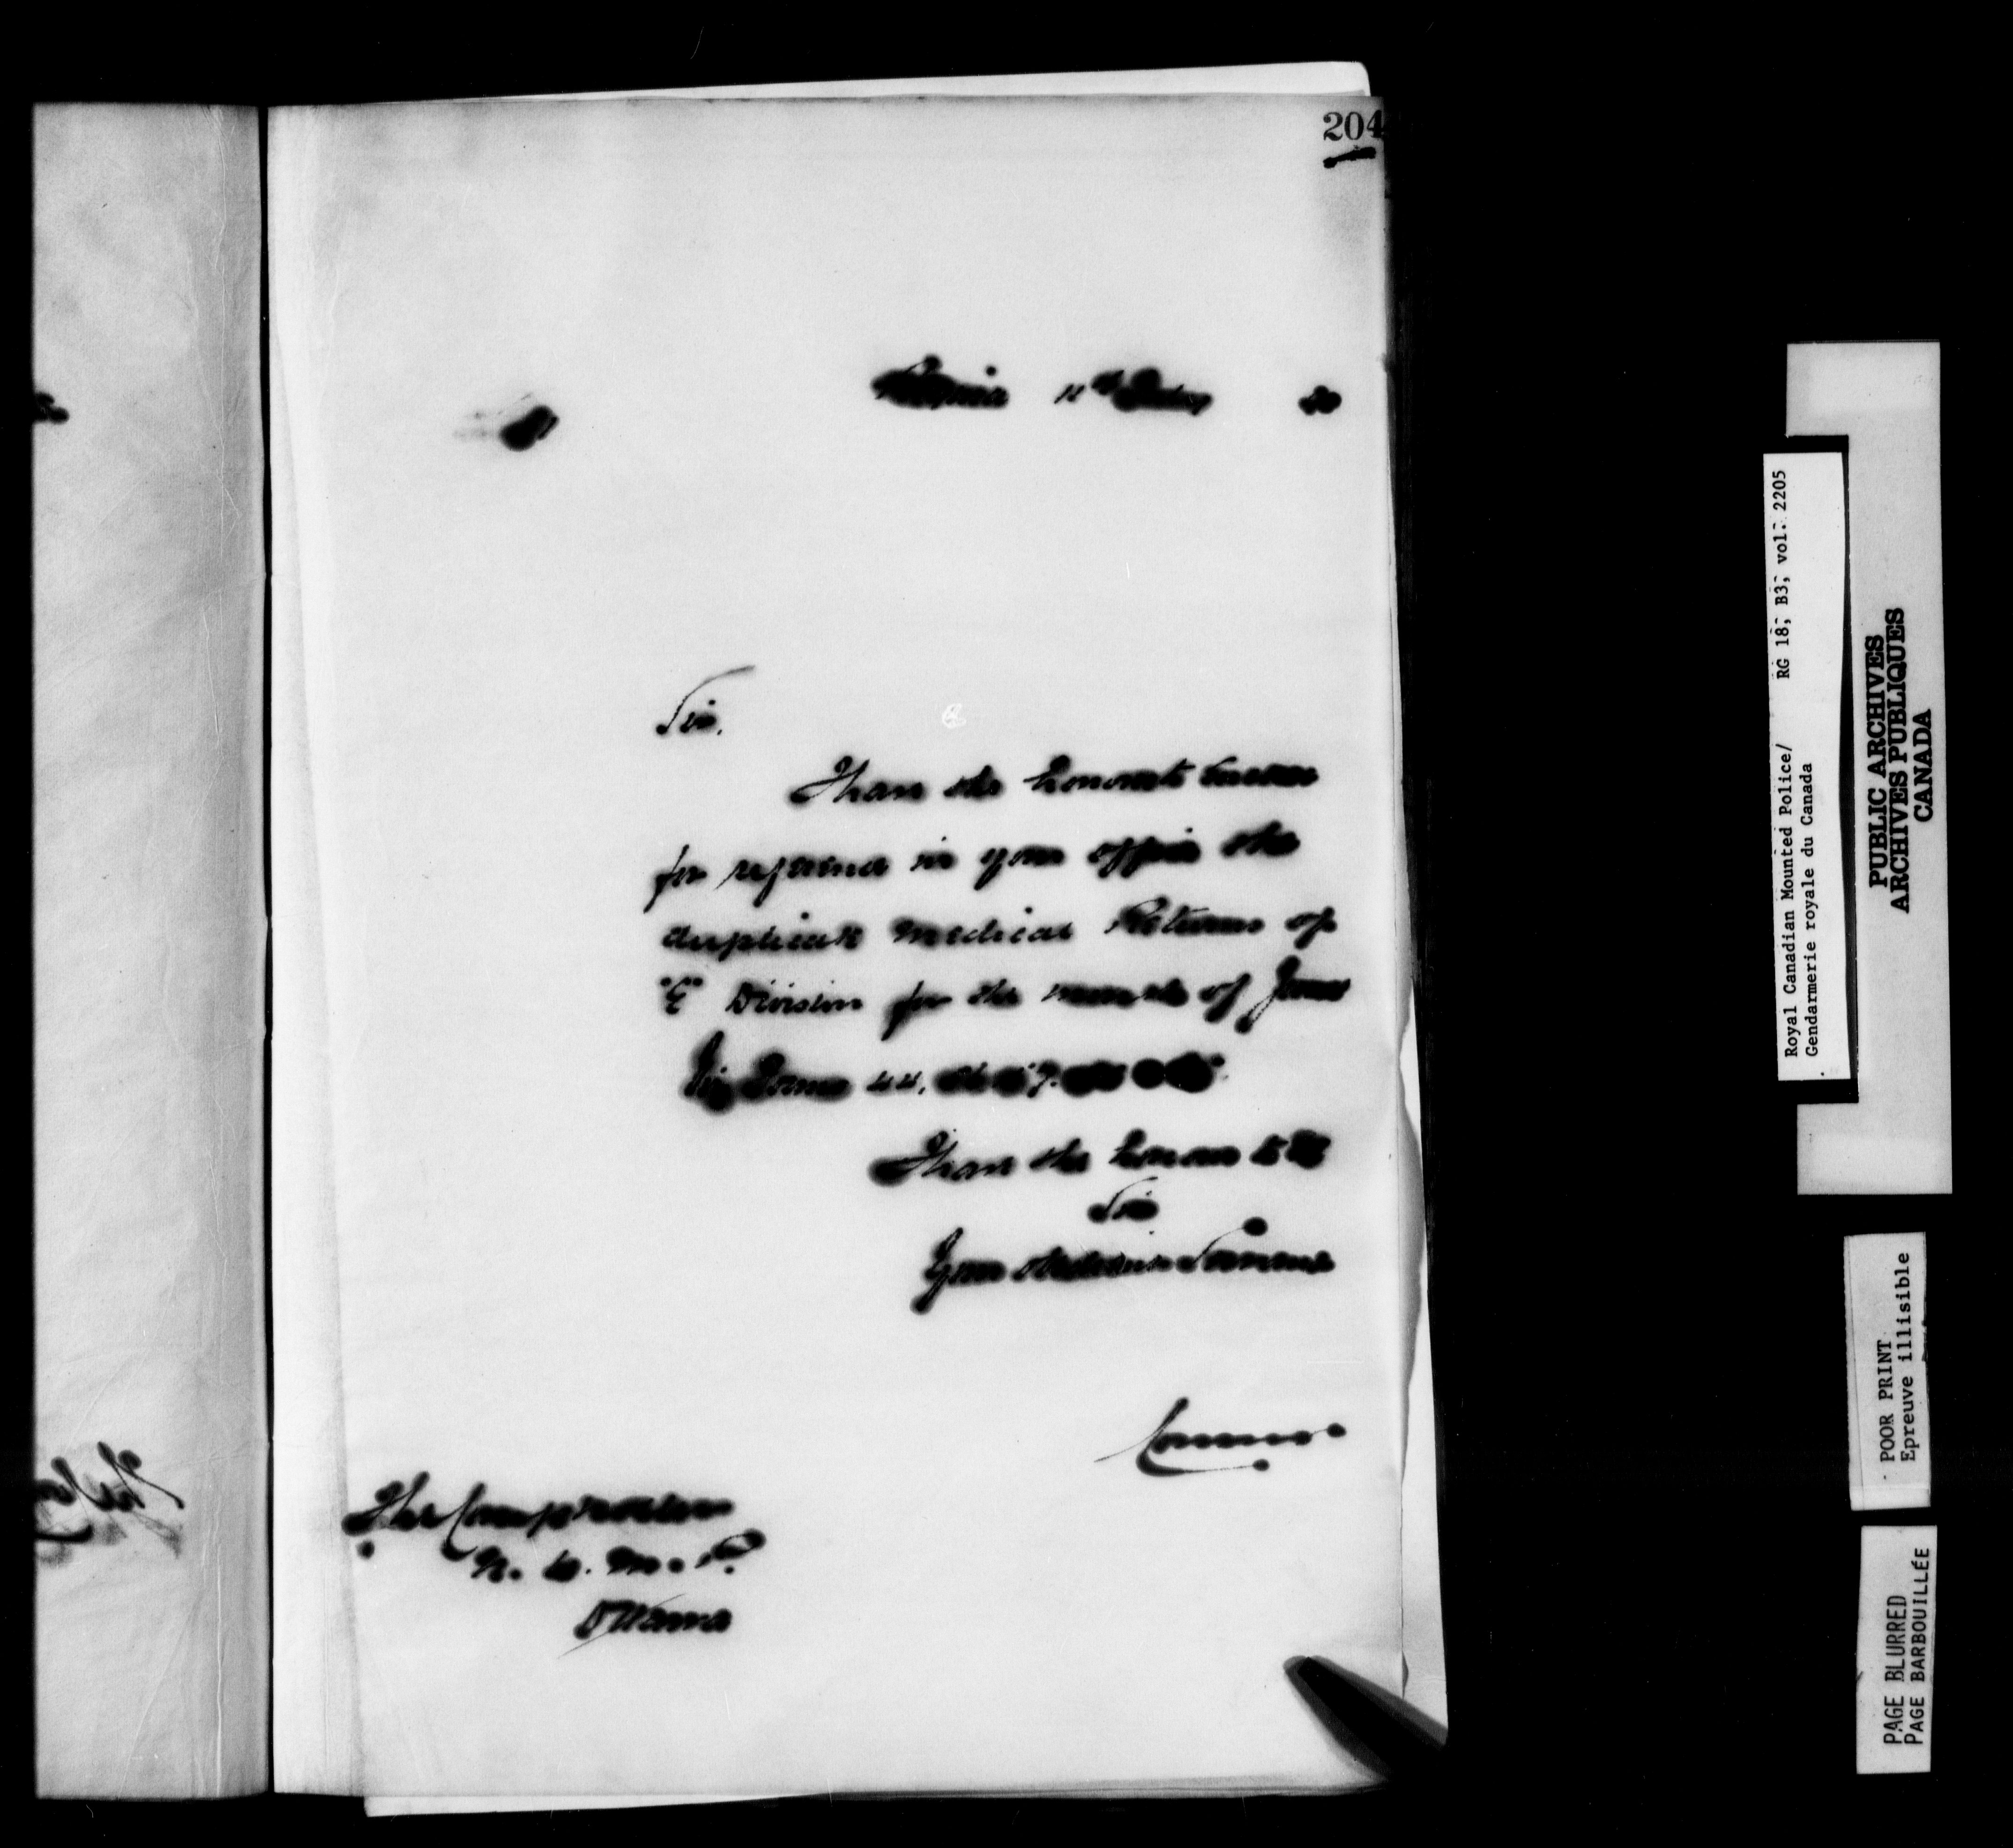 204
Regina 11th
Sir,
I have the honour to enclose
for reference in your office the
duplicate Medical Returns of
"E" Division for the month of June
Viz Forms 44,
I have the honour to be
Sir
Your obedient Servant
Commr
The Comptroller
N. W. M. P.
Ottawa
Royal Canadian Mounted Police/ RG 18; B3; vol: 2205
Gendarmerie royale du Canada
PUBLIC ARCHIVES
ARCHIVES PUBLIQUES
CANADA
POOR PRINT
Epreuve illisible
PAGE BLURRED
PAGE BARBOUILLÉE